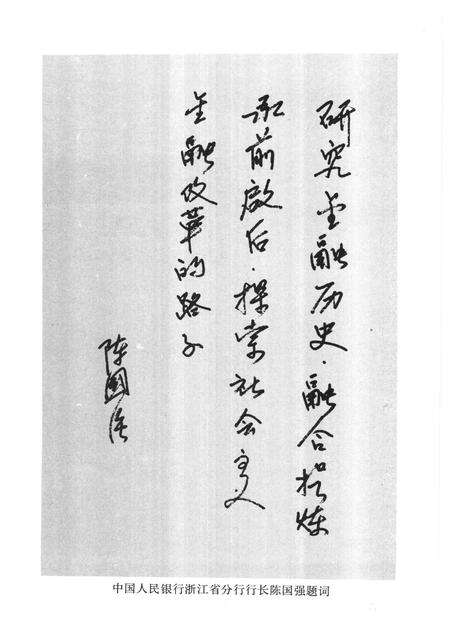 研究金融历史.融合提炼
承前启后.探索社会主义
金融改革的路子
陈国强
中国人民银行浙江省分行行长陈国强题词